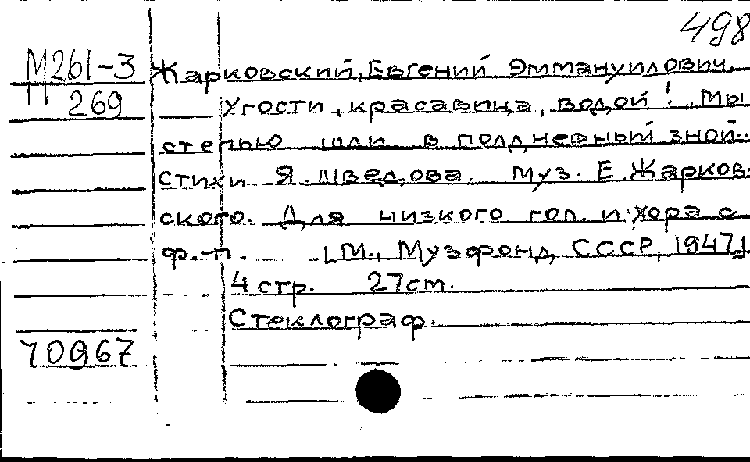 498
М261-3 Жарковский, Евгений Эммануилович.
11 269 Угости, красавица, водой! Мы
степью шли в полдневный зной...
Стихи Я. Шведова. Муз. Е. Жарков-
ского. Для низкого гол. и хора с
ф.-п. [М., Музфонд СССР, 1947]
4 стр. 27см.
Стеклограф.
70967